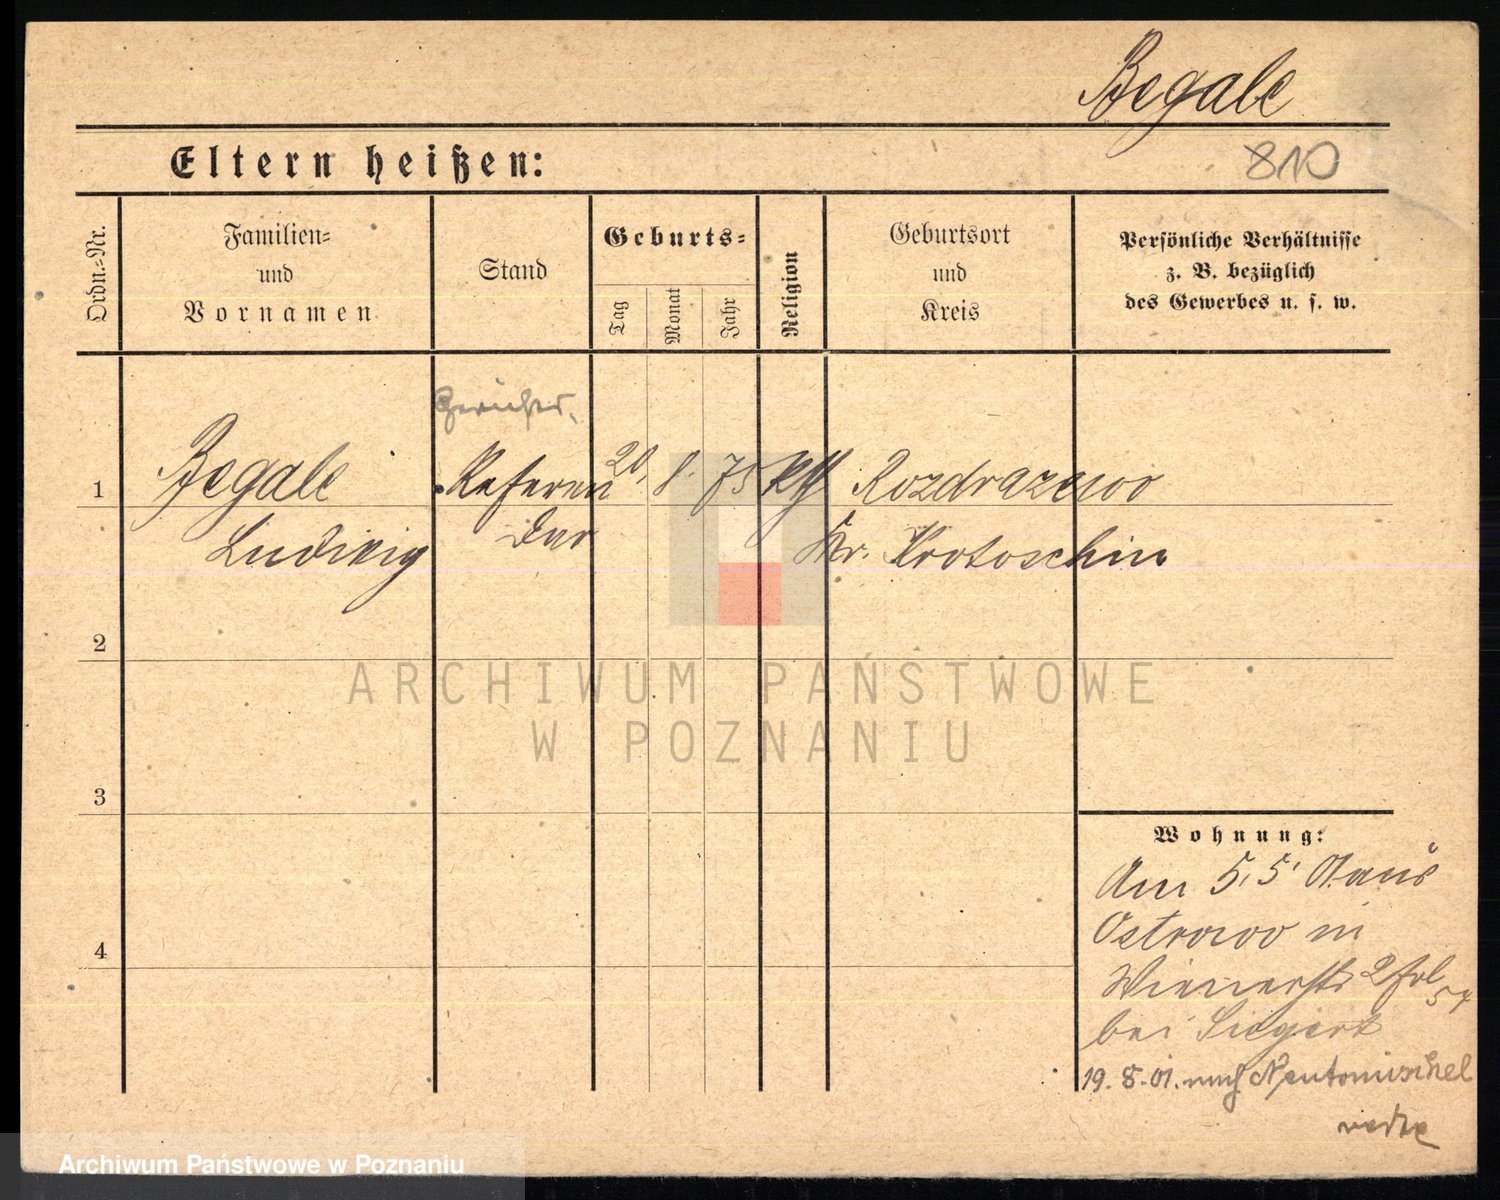 Begale
Eltern heißen:
810
Ordn.-Nr.
Familien-
und
Vornamen
Stand
Geburts-
Tag
Monat
Jahr
Religion
Geburtsort
und
Kreis
Persönliche Verhältnisse
z. B. bezüglich
des Gewerbes u. s. w.
Gerichts.
1 Begale Referen 20. 8. 75 kth Rozdrazewo
Ludwig dar Kr. Krotoschin
2
ARCHIWUM PAŃSTWOWE
W POZNANIU
3
4
Wohnung:
Am 5. 5. 01 aus
Ostrowo in
Wienerstr 2
54
bei Siegert
19. 8. 01. nach Neutomischel
Archiwum Państwowe w Poznaniu